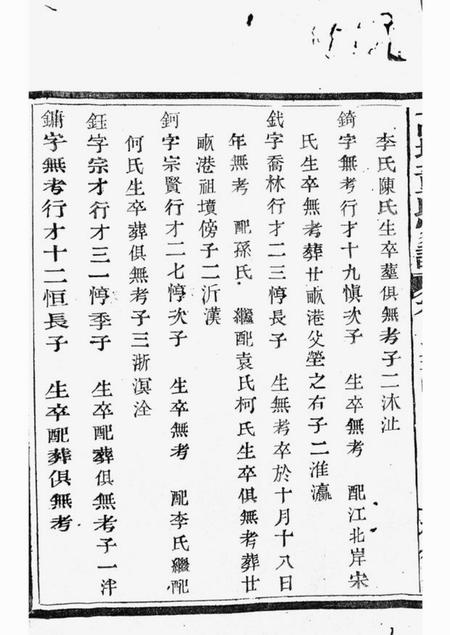 李氏陳氏生卒塟俱無考子二沐沚
錡字無考行才十九愼次子 生卒無考 配江北岸宋
氏生卒無考葬廿畝港父塋之右子二淮瀛
鉞字喬林行才二三惇長子 生無考卒於十月十八日
年無考 配孫氏 繼配袁氏柯氏生卒俱無考葬廿
畝港祖墳傍子二沂漢
鈳字宗賢行才二七惇次子 生卒無考 配李氏繼配
何氏生卒葬俱無考子三浙溟洤
鈺字宗才行才三一惇季子 生卒配葬俱無考子一泮
鏞字無考行才十二恒長子 生卒配葬俱無考